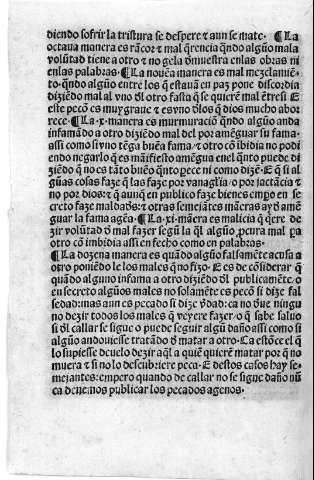 diendo sofrir la tristura se despere ⁊ aun se mate. ¶ La
octaua manera es rãcor ⁊ mal q̃rencia qñdo algũo mala
volũtad tiene a otro ⁊ no gela dmuestra enlas obras ni
enlas palabras. ¶ La nouena manera es mal mezclamiẽ-
to. qñdo algũo entre los q̃ estauã en paz pone discordia
diziẽdo mal al vno dl otro fasta q̃ se quierẽ mal
este pecõ es muy graue ⁊ es vno dlos q̃ dios mucho abor
rece. ¶ La .x. manera es murmuraciõ qñdo algũo anda
infamãdo a otro diziẽdo mal del por amẽguar su fama.
assi como si vno tẽga buẽa fama/ ⁊ otro cõ ibidia no podi
endo negarlo q̃ es mãifiesto amẽgua enel q̃nto puede di
ziẽdo q̃ no es tãto buẽo q̃nto pece ni como dizẽ. E q̃ si al
gũas cosas faze q̃ las faze por vanaglia/o por jactãcia ⁊
no por dios: ⁊ q̃ aunq̃ en publico faze bienes empo en se
creto faze maldads: ⁊ otras semejãtes maneras ay d amẽ
guar la fama agẽa. ¶ La .xi. manera es malicia q̃ q̃ere de
zir volũtad d mal fazer segũ la q̃l algũo pcura mal pa
otro cõ imbidia assi en fecho como en palabras.
¶ La dozena manera es quãdo algũo falsamẽte acusa a
otro poniẽdo le los males que no fizo. E es de cõsiderar q̃
quãdo alguno infama a otro diziẽdo dl publicamẽte. o
en secreto algũos males no solamẽte es pecõ si dize fal
sedad: mas aun es pecado si dize v̾dad: ca no due ningu
no dezir todos los males q̃ veyere fazer/o q̃ sabe saluo
si dl callar se sigue o puede seguir algũ daño assi como si
algũo andouiesse tratãdo d matar a otro. Ca estõce el q̃
lo supiesse deuelo dezir aq̃l a quiẽ quierẽ matar por q̃ no
muera ⁊ si no lo descubriere peca. E destos casos hay se-
mejantes: empero quando de callar no se sigue daño nũ
ca deuemos publicar los pecados agenos.